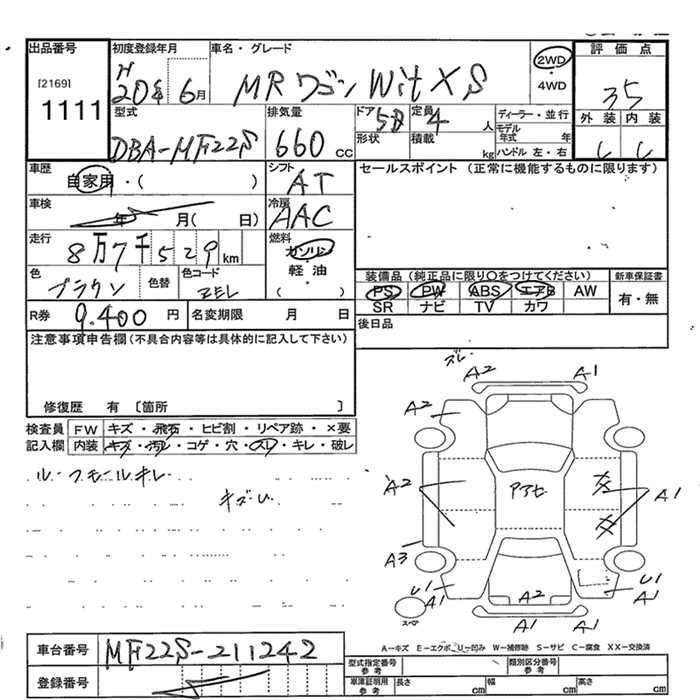 出品番号 初度登録年月 車名・グレード 評価点
[2169] 1111 H20年 6月 MRワゴン Wit XS 2WD ・ 4WD 35
外装 内装
型式 排気量 ドア 5D 定員 4 人 ディーラー・並行
DBA-MF22S 660 CC 形状 積載 kg モデル年式 年
ハンドル 左・右
車歴 自家用・( ) シフト AT セールスポイント (正常に機能するものに限ります)
車検 年 月( 日) 冷房 AAC
走行 8万7千529km 燃料 ガソリン
軽・油
( )
色 ブラウン 色替 色コード ZEL
装備品 (純正品に限り○をつけてください) 新車保証書
PS PW ABS エアB AW 有・無
SR ナビ TV カワ
R券 9.400 円 名変期限 月 日 後日品
注意事項申告欄(不具合内容等は具体的に記入して下さい)
修復歴 有 〔箇所 〕
検査員 FW キズ・飛石・ヒビ割・リペア跡・×要
記入欄 内装 キズ・汚レ・コゲ・穴・スレ・キレ・破レ
ルーフモールキレ
キズU
ズレ
A2 A1
A2 A1
A2 アアセ A1
A3
U1 A1 A2 U1 A1
スペア
A1 A1
A-キズ E-エクボ U-凹み W-補修跡 S-サビ C-腐食 XX-交換済
車台番号 MF22S-211242
登録番号
型式指定番号 参考 類別区分番号 参考
車庫証明用 参考 長さ cm 幅 cm 高さ cm